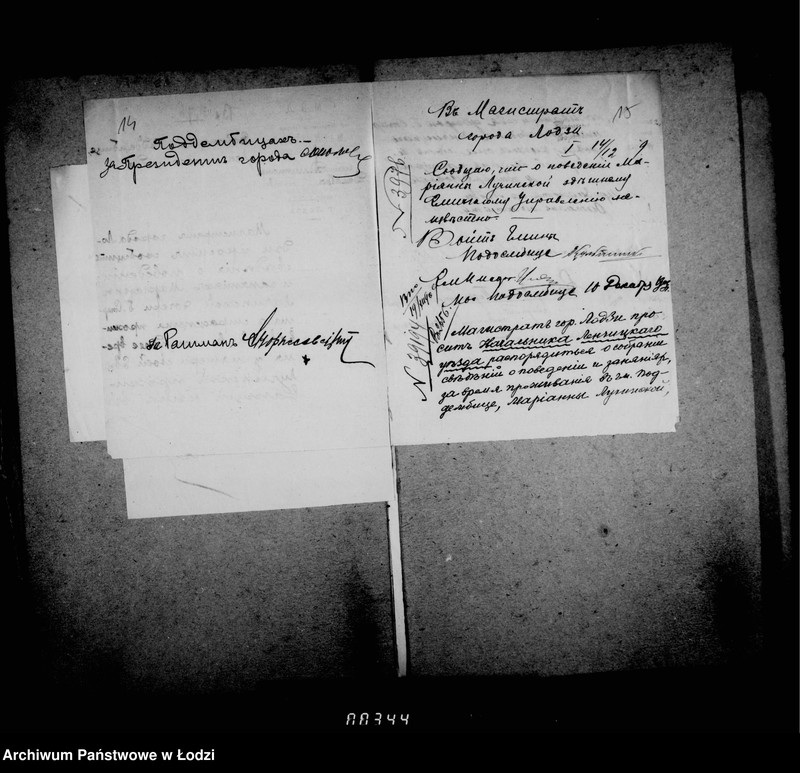 14
Поддембицахъ.
За Президентъ города
За Ратманъ
15
Въ Магистратъ
города Лодзи
I 14/12
Сообщаю, что о поведеніи Ма-
ріянны Лучинской здѣшному
Гминному Управленію не-
извѣстно
Войтъ Гмины
Поддембице
№ 3976
10 Декабр
№ 394
Магистратъ гор. Лодзи про-
ситъ Начальника Ленчицкаго
уѣзда распорядиться о собраніи
свѣдѣній о поведеніи и занятіяхъ,
за время проживанія въ гм. Под-
дембице, Маріанны Лучинской,
ПП344
Archiwum Państwowe w Łodzi